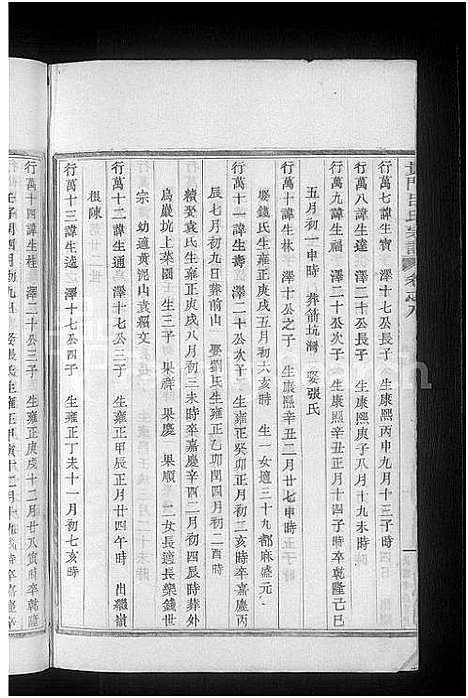 行萬七諱生寶　澤十七公長子　生康熙丙申九月十三子時
行萬八諱生達　澤二十公長子　生康熙庚子八月十九未時
行萬九諱生福　澤二十公次子　生康熙辛丑正月十四子時卒乾隆己巳
五月初一申時　葬箭坑灣　娶張氏
行萬十諱生林　澤十七公之子　生康熙辛丑二月廿七申時
娶錢氏生雍正庚戌五月初六亥時　生一女適三十九都麻盛元
行萬十一諱生壽　澤二十公次子　生雍正癸卯正月初二亥時卒嘉慶丙
辰七月初九日葬前山　娶劉氏生雍正乙卯閏四月初二酉時
續娶袁氏生雍正庚戌八月初三未時卒嘉慶辛酉二月初四辰時葬外
烏巖坑上菜園　生三子　果祥　果慶　果順　二女長適長樂錢世
宗　幼適黃泥山袁紹文
行萬十二諱生通　澤十七公三子　生雍正甲辰正月廿四午時　出繼嶺
根陳
行萬十三諱生遠　澤十七公四子　生雍正丁未十一月初七亥時
行萬十四諱生桂　澤二十公三子　生雍正庚戌十二月廿八寅時卒乾隆